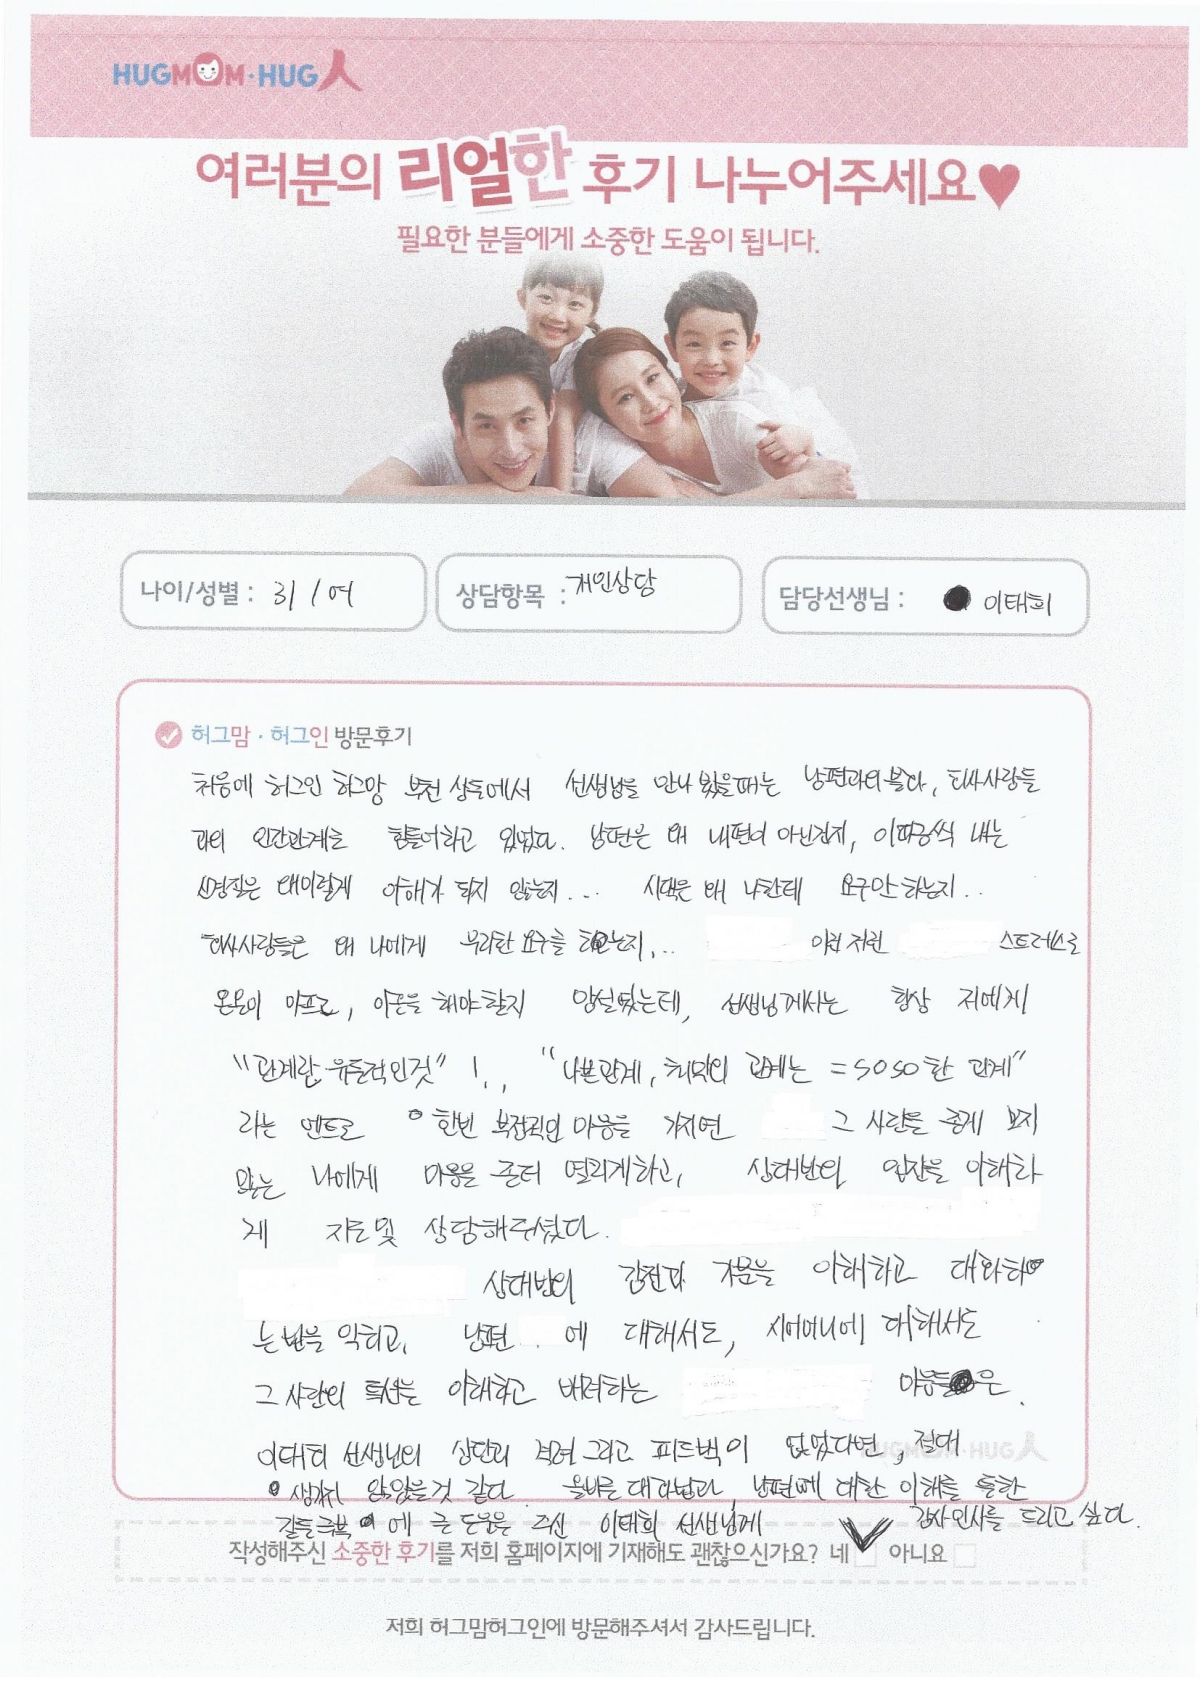 HUGMOM·HUG人
여러분의 리얼한 후기 나누어주세요♥
필요한 분들에게 소중한 도움이 됩니다.
나이/성별 : 31 / 여
상담항목 : 개인상담
담당선생님 : 이태희
허그맘·허그인 방문후기
처음에 허그인 허그맘 부천 상동에서 선생님을 만나 뵀을때는 남편과의 불화, 회사사람들
과의 인간관계로 힘들어하고 있었다. 남편은 왜 내편이 아닌건지, 이따금씩 내는
신경질은 왜이렇게 이해가 되지 않는지... 시댁은 왜 나한테 요구만 하는지..
회사사람들은 왜 나에게 무리한 요구를 하는지,.. 이런저런 스트레스로
온몸이 아프고, 이혼을 해야할지 망설였는데, 선생님께서는 항상 저에게
"관계란, 유동적인것" !, "나쁜관계, 최악의 관계는 = soso한 관계"
라는 멘트로 한번 부정적인 마음을 가지면 그 사람을 좋게 보지
않는 나에게 마음을 좀더 열리게하고, 상대방의 입장을 이해하
게 지도및 상담해주셨다.
상대방의 감정과 기분을 이해하고 대화하
는법을 익히고, 남편 에 대해서도, 시어머니에 대해서도
그 사람의 특성을 이해하고 배려하는 마음들은
이태희 선생님의 상담과 격려 그리고 피드백이 없었다면, 절대
생기지 않았을것 같다. 올바른 대화법과, 남편에 대한 이해를 통한
갈등극복 에 큰 도움을 주신 이태희 선생님께 감사인사를 드리고 싶다.
작성해주신 소중한 후기를 저희 홈페이지에 기재해도 괜찮으신가요? 네 아니요
저희 허그맘허그인에 방문해주셔서 감사드립니다.